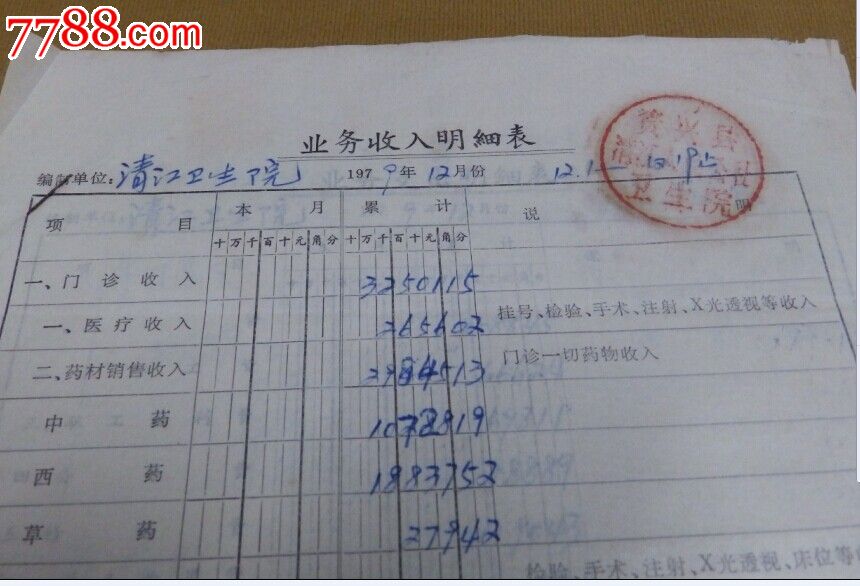 7788.com
中国收藏热线
业务收入明细表
编制单位:清江卫生院 1979年12月份
资兴县
卫生院
项目 本月 累计 说明
十万千百十元角分 十万千百十元角分
一、门诊收入 3250115
一、医疗收入 265602 挂号、检验、手术、注射、X光透视等收入
二、药材销售收入 2984513 门诊一切药物收入
中药 1072819
西药 1883752
草药 27942
检验、手术、注射、X光透视、床位等